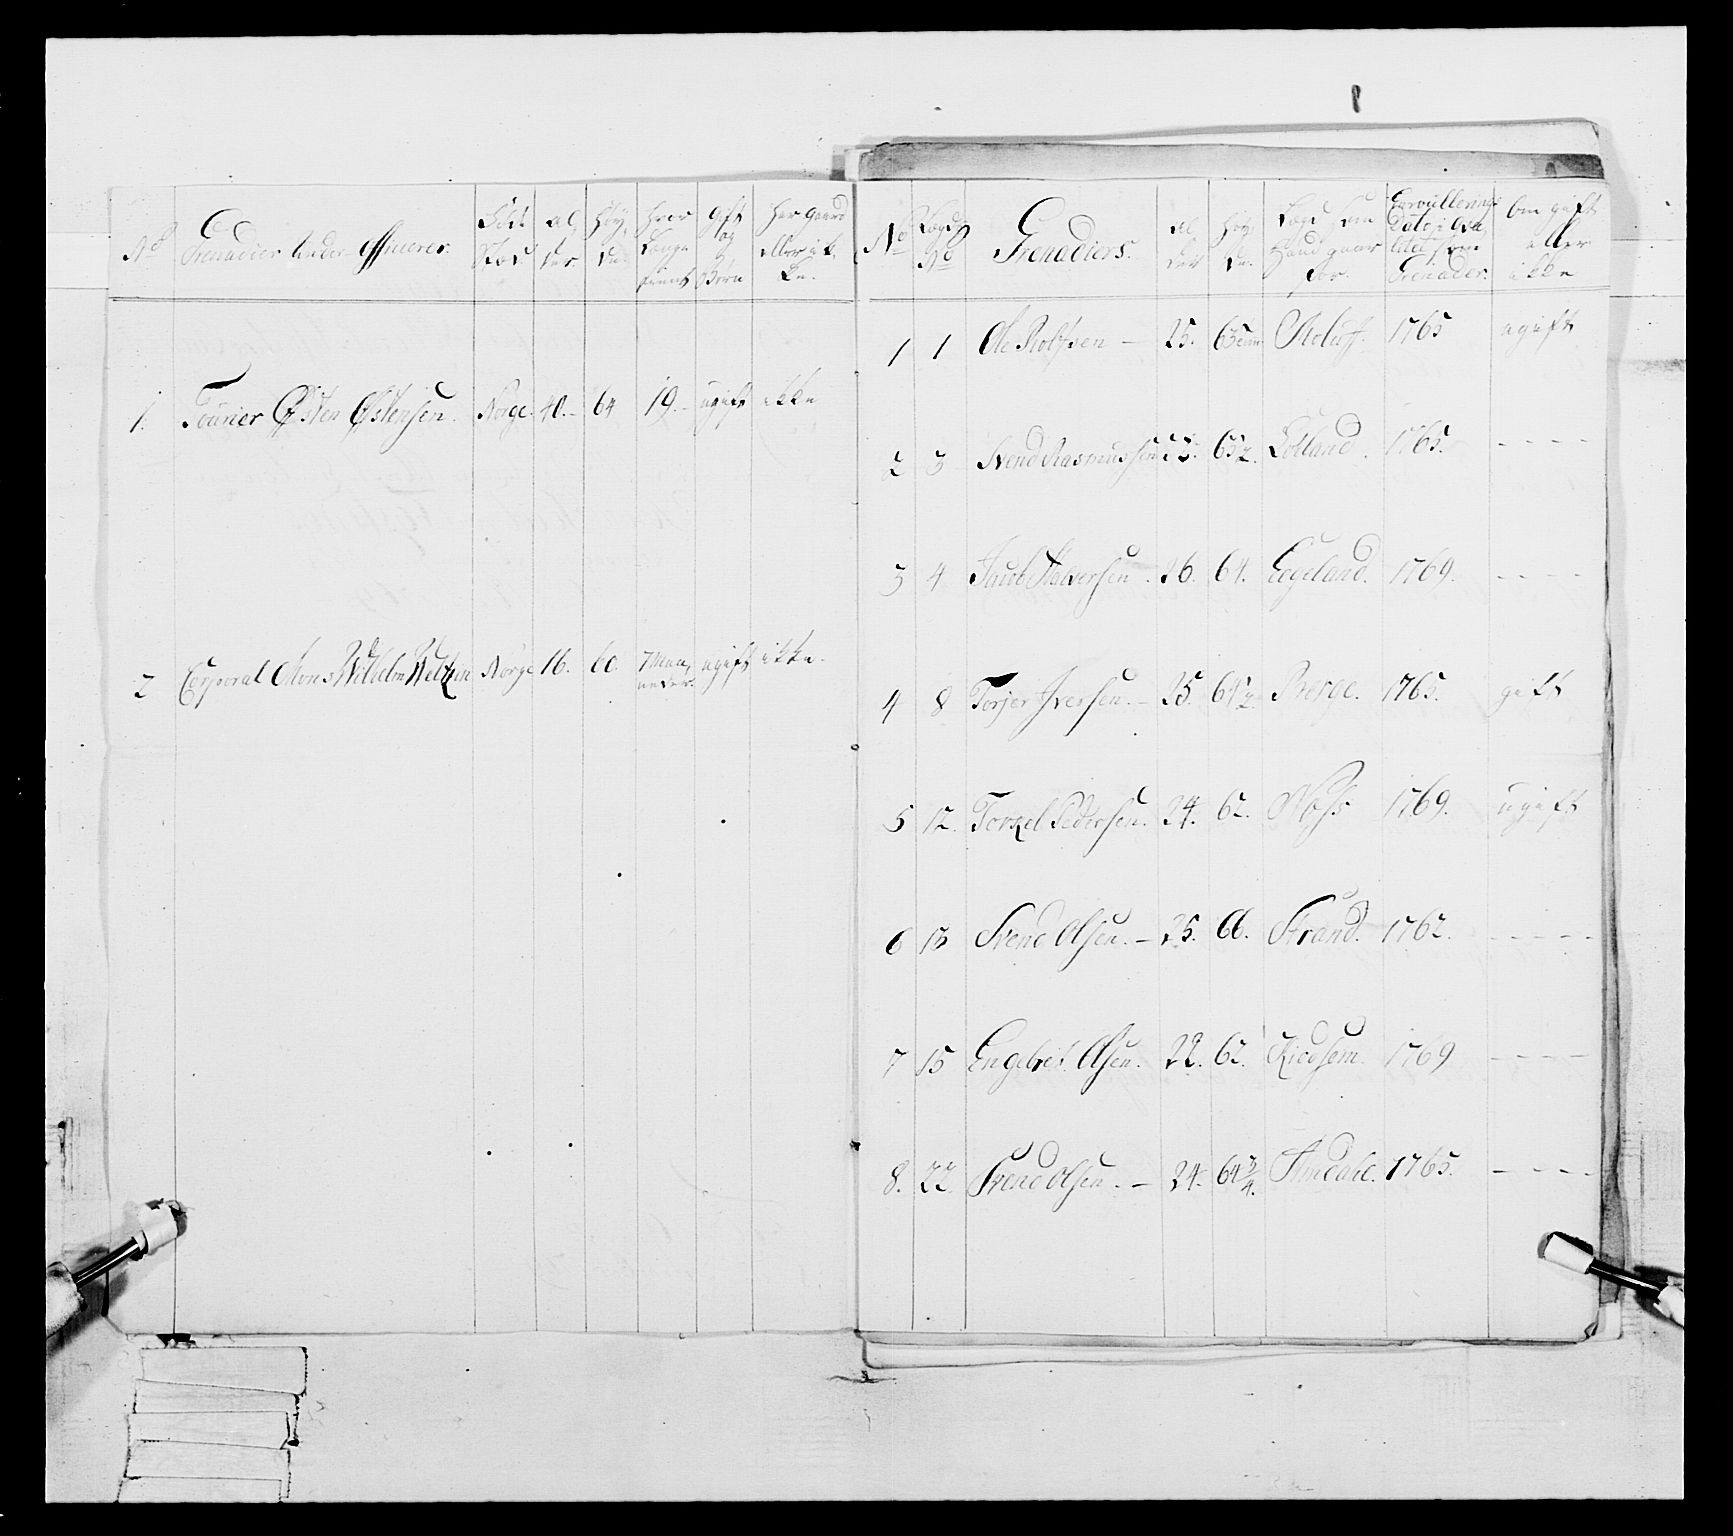 No Grenadier Under Officerer. Føde Sted. al, der. Høy, de. Hvor Længe tient Gift og Børn Har Gaard eller ik, ke.
1. Fourier Østen Østensen. Norge. 40. - 64 19. - ugift ikke
2 Corporal Mons Wilhelm Norge 16. 60. 7 Maa, neder. ugift ikke.
No Lægds No Grenadiers. al der Høy, de. Lægd som Hand gaar for. Enroullerings Dato i Qva, litet som Grenader. Om gift eller ikke
1 1 Ole Rolfsen - 25. 1765 ugift
2 3 Svend Rasmussen 65 1/2. 1765. - - - -
3 4 Jacob Halversen. 26. 64. Egeland. 1769. - - - -
4 8 Torjer Iversen. - 25. 64 1/2. Berge. 1765. gift
5 12. Torkel Pedersen. 24. 62. 1769. ugift
6 13 Svend Olsen. - 25. 66. Strand. 1762. - - - -
7 15 Engebret Olsen. 22. 62. 1769 - - - -
8. 22 Svend Olsen. - 24. 64 3/4. Amdahl. 1765. - - - -